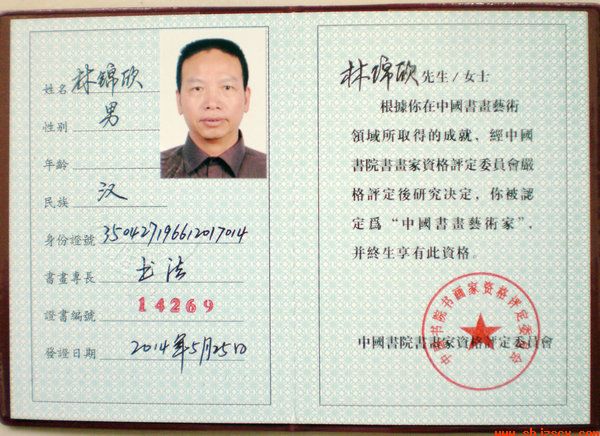 姓名 林锦欣
性別 男
年齡
民族 汉
身份證號 350427196612017014
書畫專長 书法
證書編號 14269
發證日期 2014年5月25日
林锦欣 先生/女士
根據你在中國書畫藝術
領域所取得的成就，經中國
書院書畫家資格評定委員會嚴
格評定後研究決定，你被認
定爲“中國書畫藝術家”，
并終生享有此資格。
中國書院書畫家資格評定委員會
中国书院书画家资格评定委员会